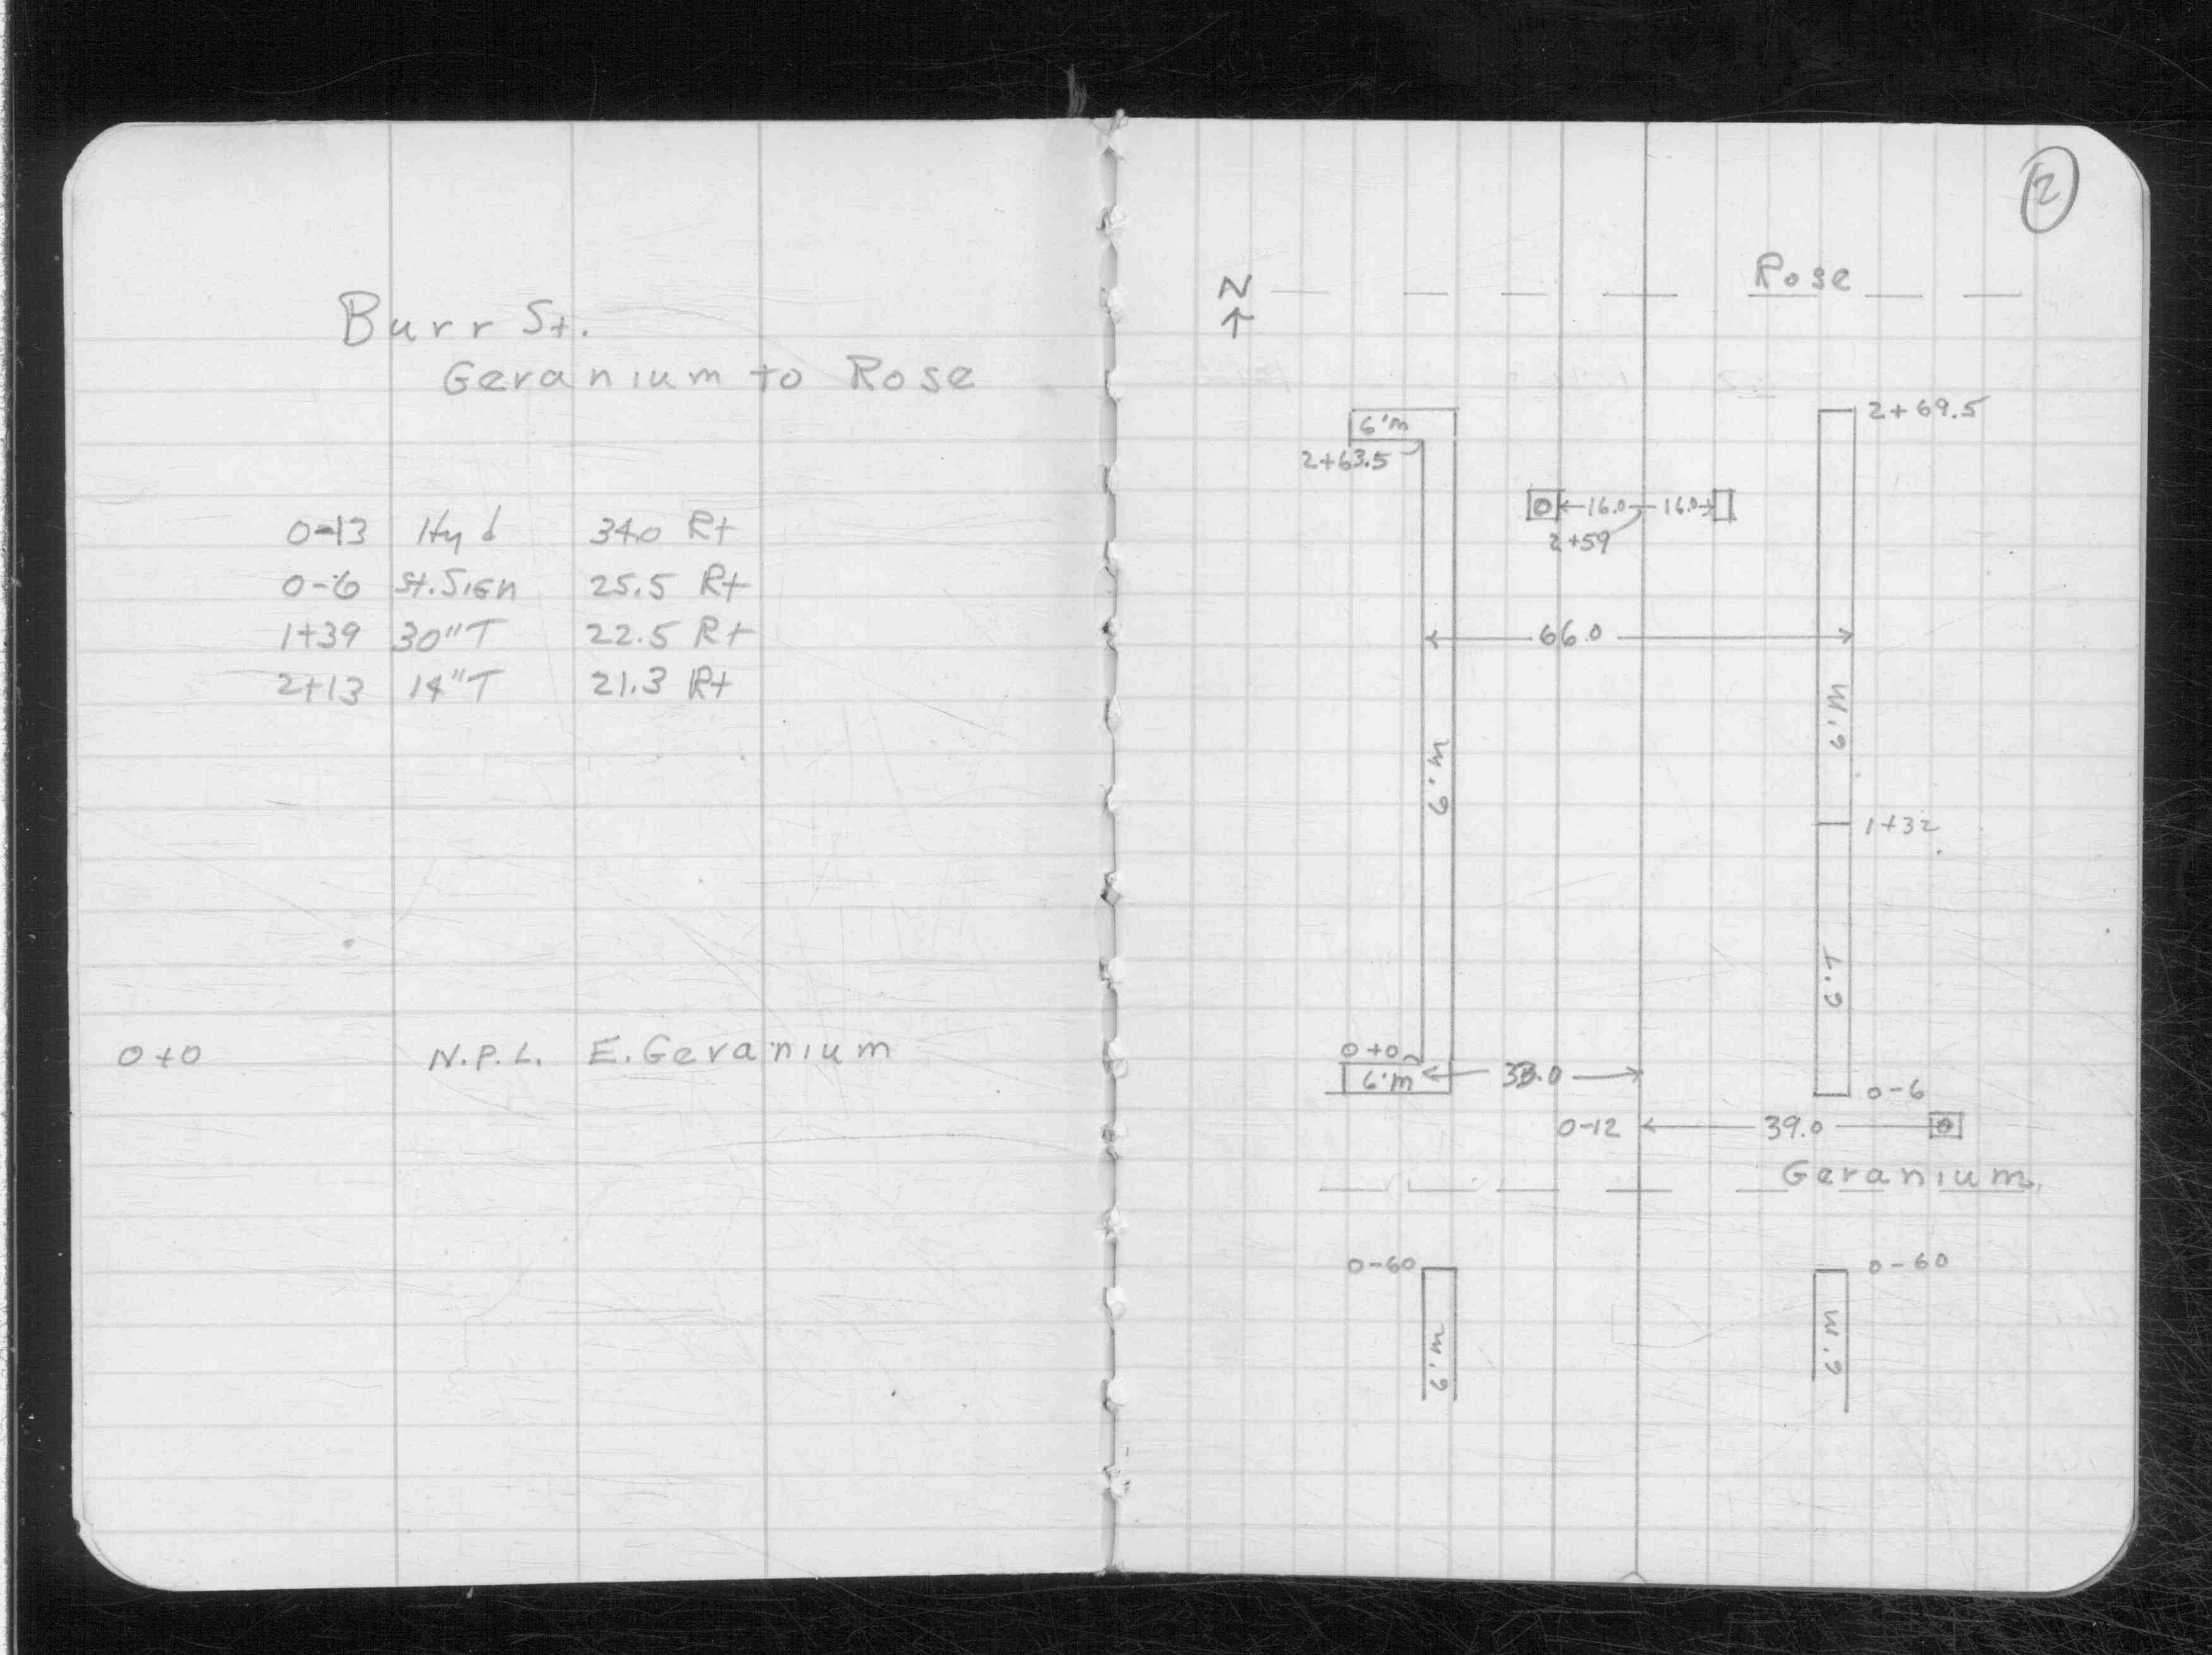 Burr St.
Geranium to Rose
0-13 Hyd 34.0 Rt
0-6 St. Sign 25.5 Rt
1+39 30"T 22.5 Rt
2+13 14"T 21.3 Rt
0+0 N.P.L. E. Geranium
2
N
Rose
6'm
2+69.5
2+63.5
16.0 16.0
2+59
66.0
6'm
6'm
1+32
6'T
0+0
6'm
33.0
0-6
0-12 39.0
Geranium
0-60
0-60
6'm
6'm